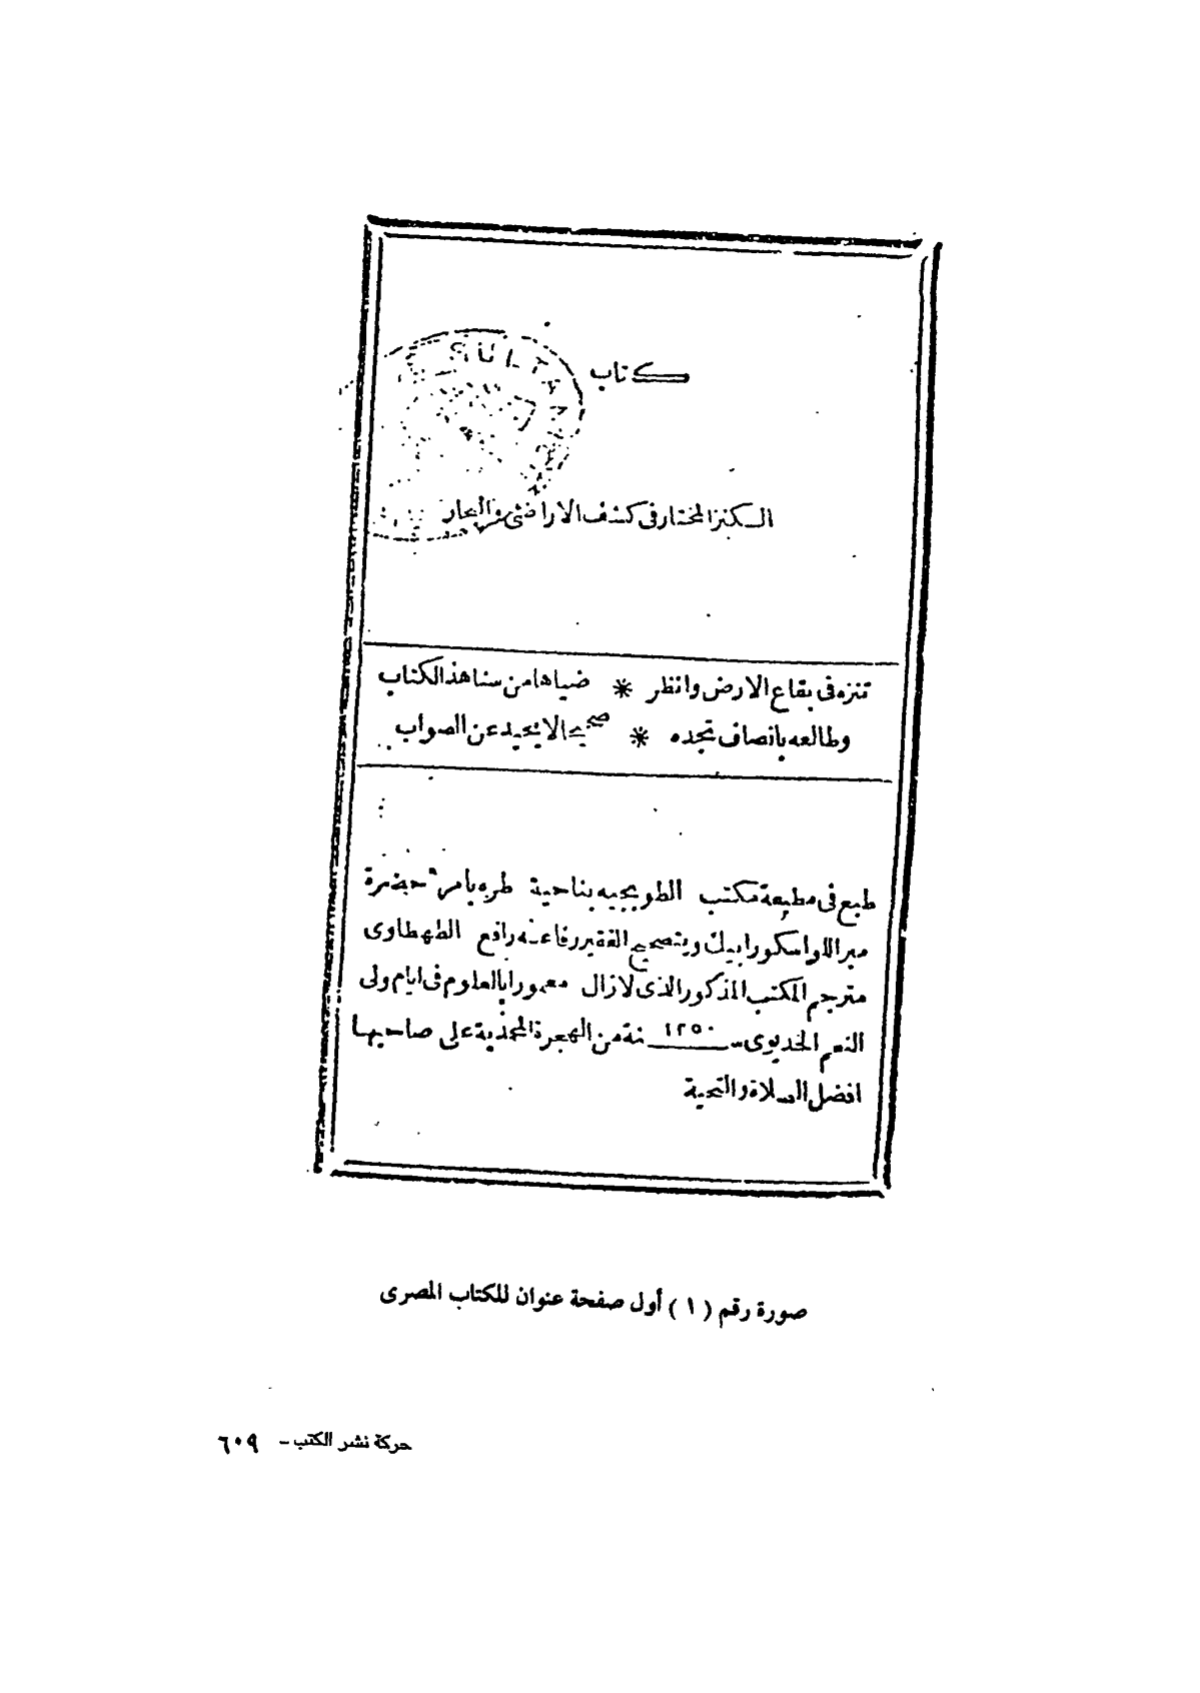 SULTAN
كتاب
الكنز المختار فى كشف الاراضى والبحار
تنزه فى بقاع الارض وانظر * ضياها من سنا هذ الكتاب
وطالعه بانصاف تجده * صحيحا لا يحيد عن الصواب
طبع فى مطبعة مكتب الطوبجيه بناحية طره بامر حضرة
ميرالاواسكورا بيك وبتصحيح الفقير رفاعه رافع الطهطاوى
مترجم المكتب المذكور الذى لازال معمورا بالعلوم فى ايام ولى
النعم الخديوى سنة ١٢٥٠ من الهجرة المحمدية على صاحبها
افضل الصلاة والتحية
صورة رقم (١) أول صفحة عنوان للكتاب المصرى
حركة نشر الكتب - ٦٠٩